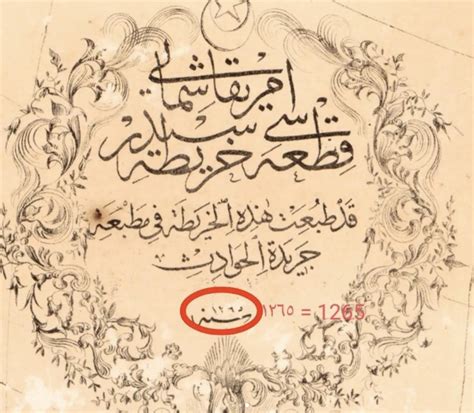 امريقا شمالي
قطعه سي خريطه سيدر
قد طبعت هذه الخريطة في مطبعه
جريدة الحوادث
سنه ١٢٦٥ ١٢٦٥ = 1265